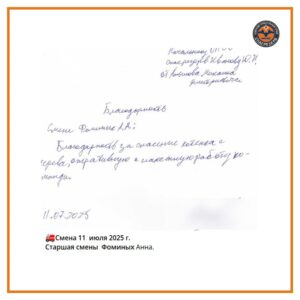 Начальнику
Иванову Ю.Н.
от
Дмитриевича
Благодарность
Смене Фоминых А.А.:
Благодарность за спасение котенка с
дерева, оперативную и слаженную работу ко-
манды.
11.07.2025
Смена 11 июля 2025 г.
Старшая смены Фоминых Анна.